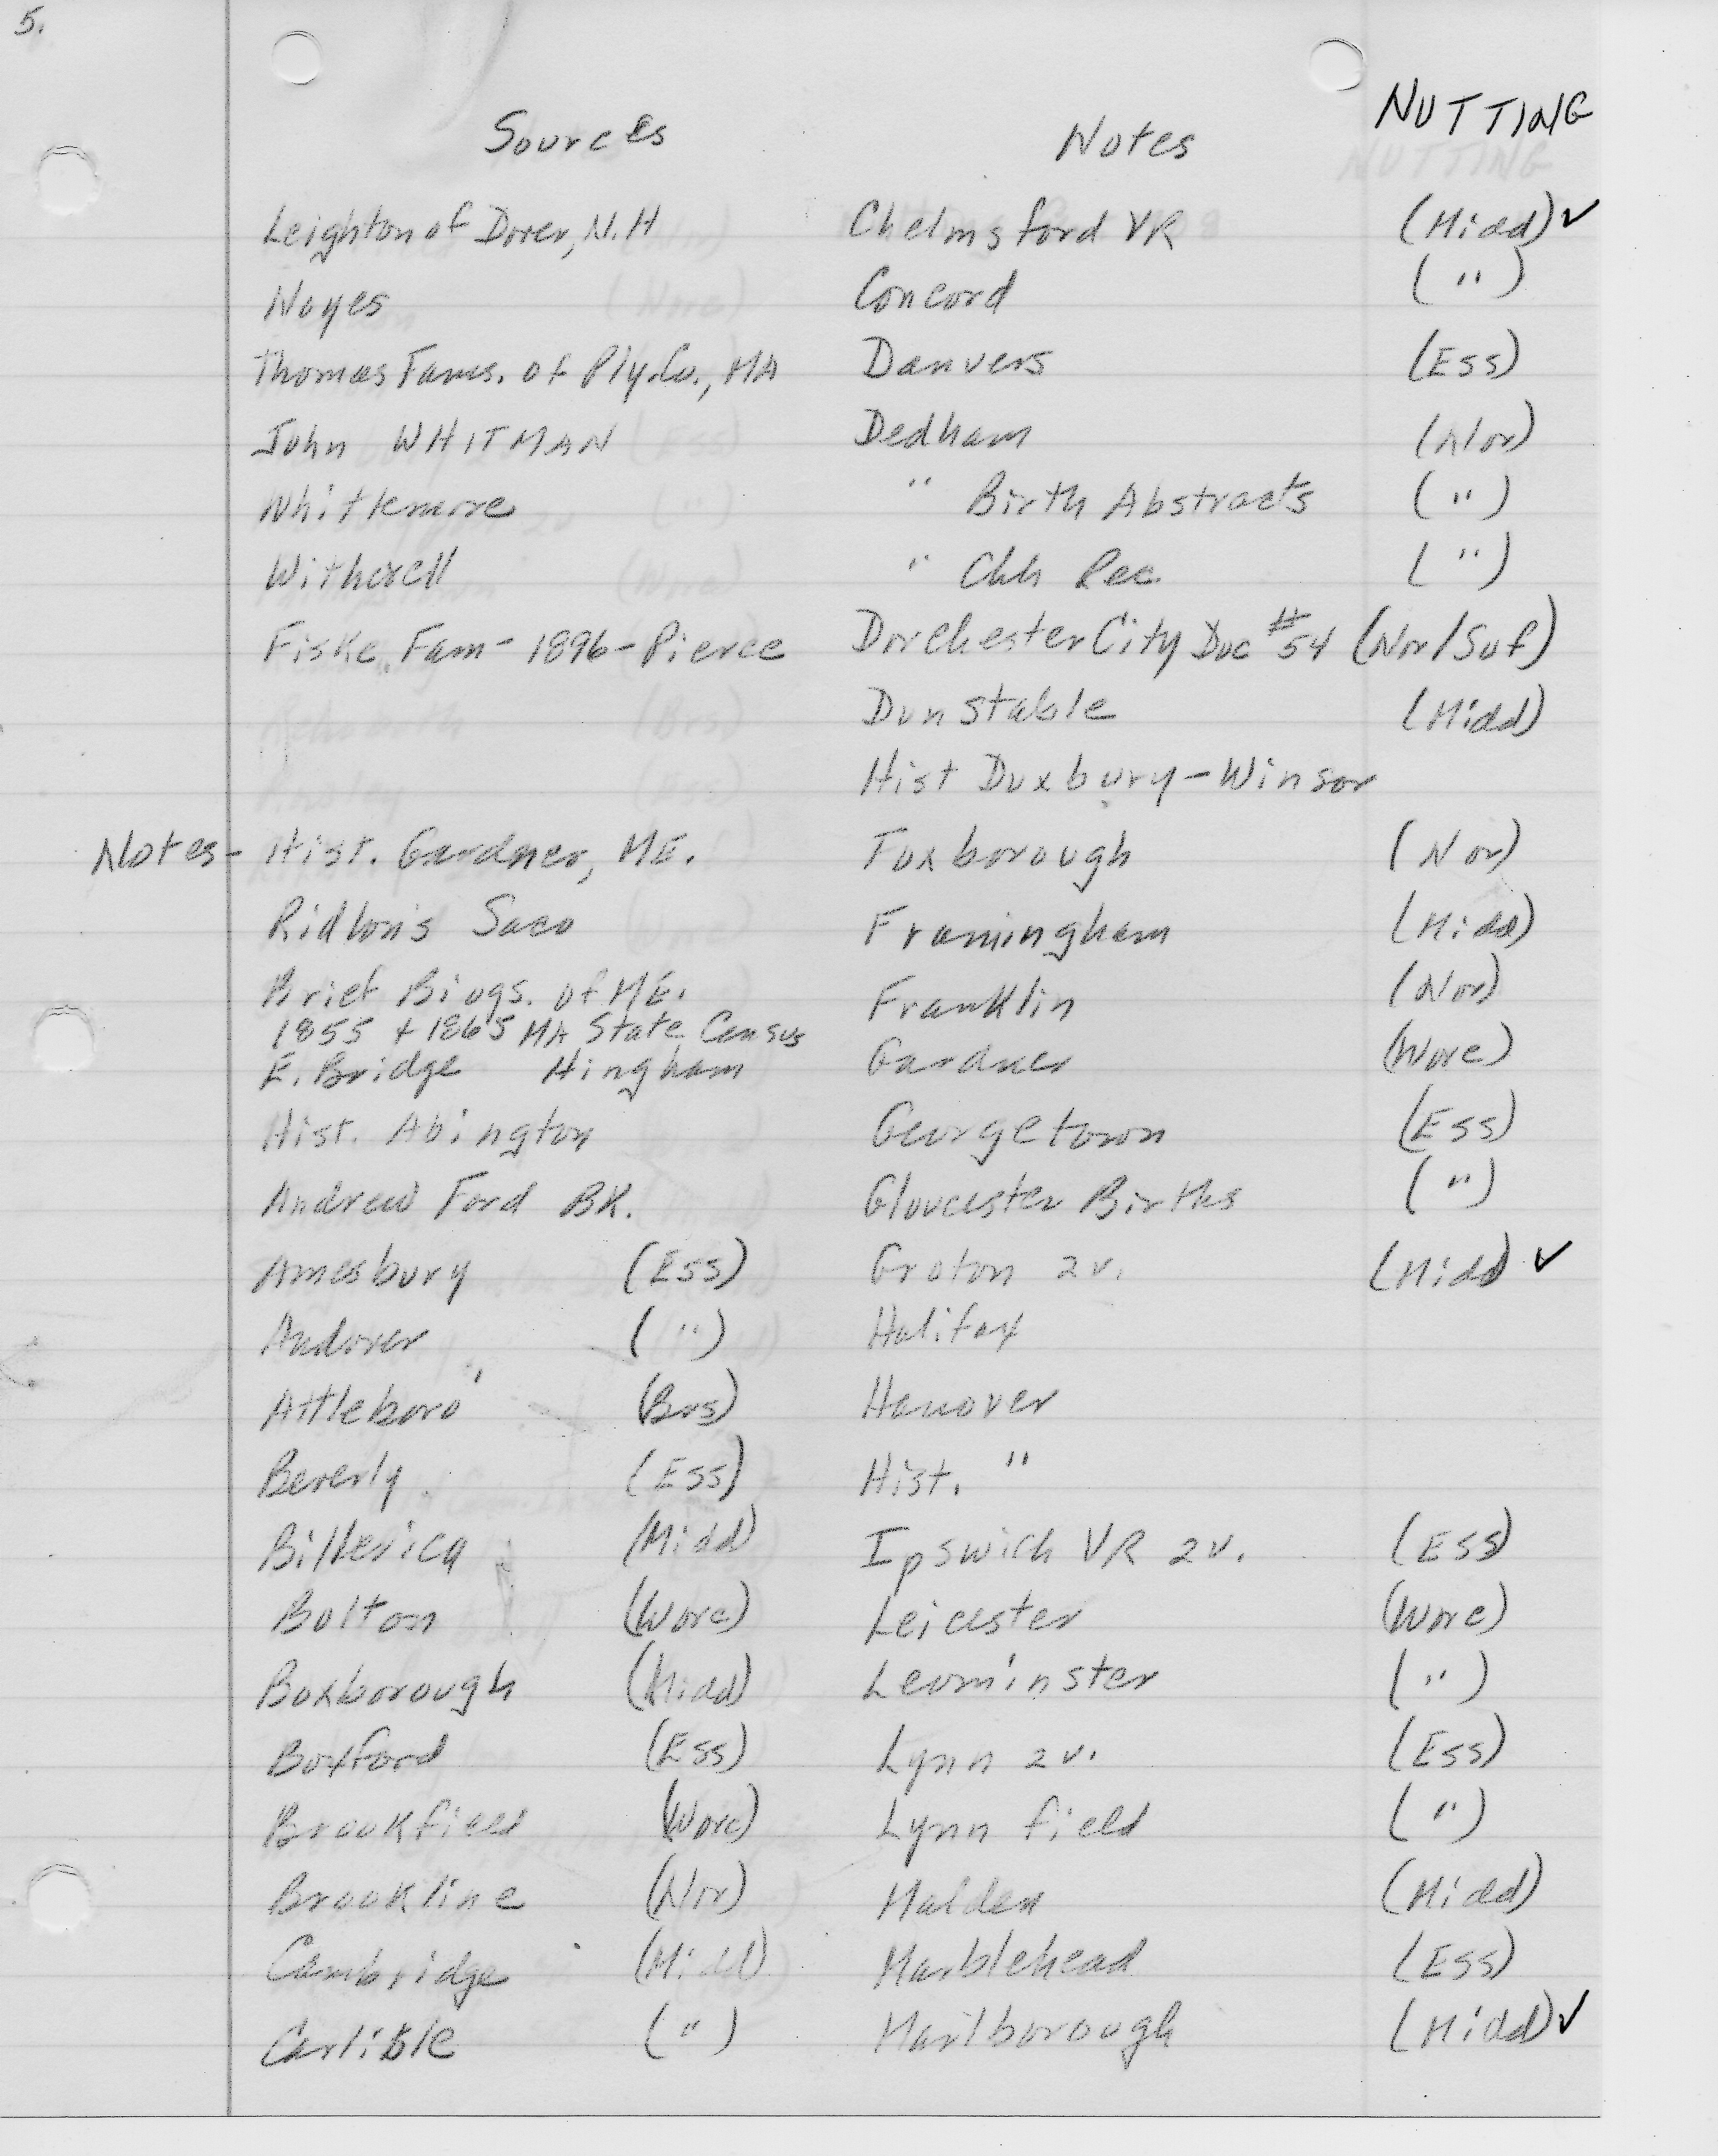 5.
NUTTING
Sources Notes
Leighton of Dover, N.H Chelmsford VR (Midd) ✓
Noyes Concord (")
Thomas Fams. of Ply.Co., MA Danvers (Ess)
John WHITMAN Dedham (Nor)
Whittemore " Birth Abstracts (")
Witherell " Chh Rec (")
Fiske Fam - 1896 - Pierce Dorchester City Doc #54 (Nor/Suf)
Dunstable (Midd)
Hist Duxbury - Winsor
Notes - Hist. Gardner, ME. Foxborough (Nor)
Ridlon's Saco Framingham (Midd)
Brief Biogs. of ME. Franklin (Nor)
1855 + 1865 MA State Census
E. Bridge Hingham Gardner (Worc)
Hist. Abington Georgetown (Ess)
Andrew Ford BK. Gloucester Births (")
Amesbury (Ess) Groton 2v. (Midd) ✓
Andover (") Halifax
Attleboro' (Brs) Hanover
Beverly (Ess) Hist. "
Billerica (Midd) Ipswich VR 2v. (Ess)
Bolton (Worc) Leicester (Worc)
Boxborough (Midd) Leominster (")
Boxford (Ess) Lynn 2v. (Ess)
Brookfield (Worc) Lynnfield (")
Brookline (Nor) Malden (Midd)
Cambridge (Midd) Marblehead (Ess)
Carlisle (") Marlborough (Midd) ✓